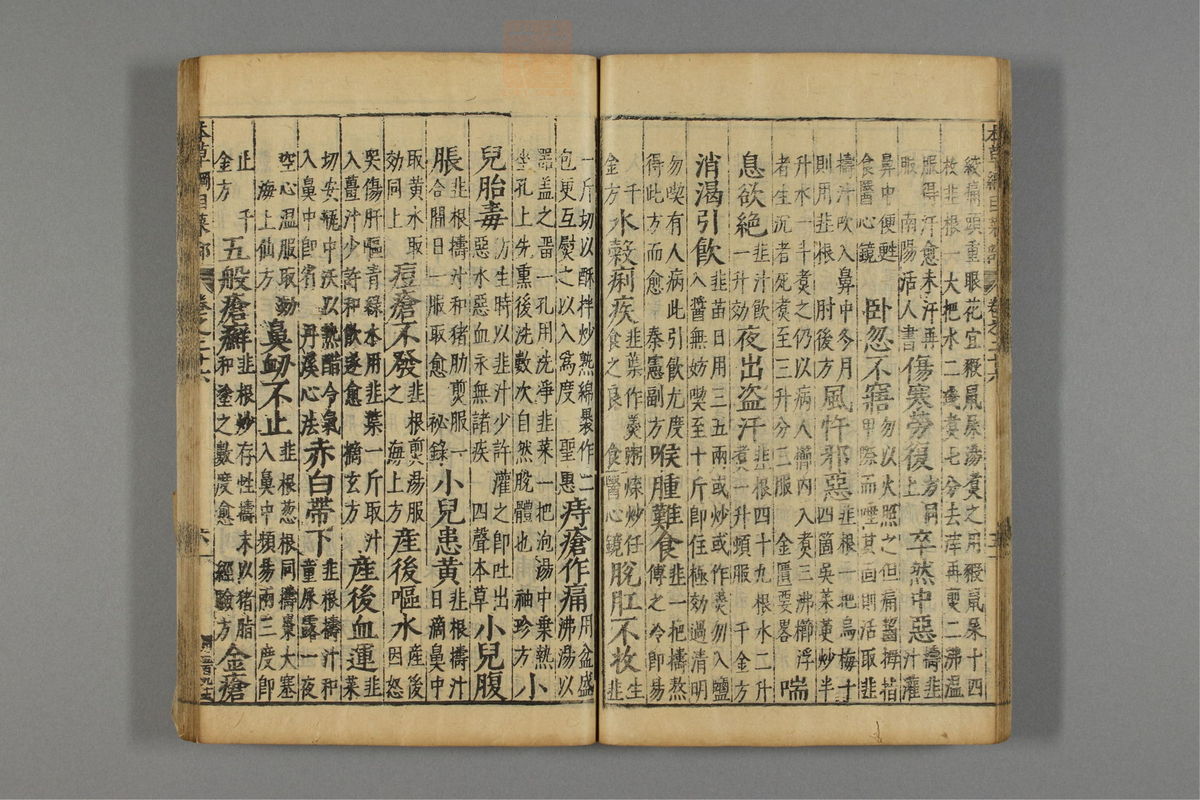 本草綱目菜部 卷之二十六 五
絞痛頭重眼花宜猳鼠屎湯煑之用猳鼠屎十四
枚韭根一大把水二盞煑七分去滓再煎二沸溫
服得汗愈未汗再服 南陽活人書 傷寒勞復 方同上 卒然中惡 擣韭汁灌
鼻中便甦 食醫心鏡 卧忽不寤 勿以火照之但痛齧拇指甲際而唾其面則活取韭
擣汁吹入鼻中冬月則用韭根 肘後方 風忤邪惡 韭根一把烏梅十四箇吳茱萸炒半
升水一斗煑之仍以病人櫛內入煑三沸櫛浮者生沉者死煑至三升分三服 金匱要畧 喘
息欲絶 韭汁飲一升効 夜出盗汗 韭根四十九根水二升煑一升頓服 千金方
消渴引飲 韭苗日用三五兩或炒或作羹勿入鹽入醬無妨喫至十斤即住極効過清明
勿喫有人病此引飲尤度得此方而愈 秦憲副方 喉腫難食 韭一把擣熬傅之冷即易
千金方 水穀痢疾 韭葉作羹粥煠炒任食之良 食醫心鏡 脫肛不收 生韭
一斤切以酥拌炒熟綿裹作二包更互熨之以入爲度 聖惠 痔瘡作痛 用盆盛沸湯以
器盖之畱一孔用洗淨韭菜一把泡湯中乗熱坐孔上先熏後洗數次自然脫體也 袖珍方 小
兒胎毒 初生時以韭汁少許灌之即吐出惡水惡血永無諸疾 四聲本草 小兒腹
脹 韭根擣汁和猪肪煎服一合間日一服取愈 祕錄 小兒患黃 韭根擣汁日滴鼻中
取黃水取効同上 痘瘡不發 韭根煎湯服之 海上方 產後嘔水 產後因怒
哭傷肝嘔青綠水用韭葉一斤取汁入薑汁少許和飲遂愈 摘玄方 產後血運 韭菜
切安瓶中沃以熱醋令氣入鼻中即省 丹溪心法 赤白帶下 韭根擣汁和童尿露一夜
空心溫服取効 海上仙方 鼻衂不止 韭根葱根同擣棗大塞入鼻中頻易兩三度即
止 千金方 五般瘡癬 韭根炒存性擣末以猪脂和塗之數度愈 經驗方 金瘡
本草綱目菜部 卷之二十六 六